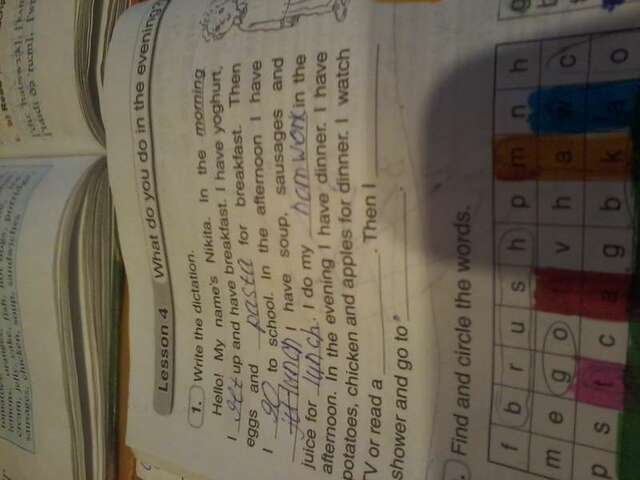 lemons, oranges, hot dogs, porridge
cream, jelly, cake, fish,
sausages, chicken, soup, sandwiches
Lesson 4 What do you do in the evening?
1. Write the dictation.
Hello! My name's Nikita. In the morning
I get up and have breakfast. I have yoghurt,
eggs and pasta for breakfast. Then
I go to school. In the afternoon I have
lunch I have soup, sausages and
juice for lynch. I do my homwork in the
afternoon. In the evening I have dinner. I have
potatoes, chicken and apples for dinner. I watch
TV or read a ____. Then I ____
shower and go to ____.
Find and circle the words.
f b r u s h p m n h
m e g o v h a w c
p s t c a g b k a o